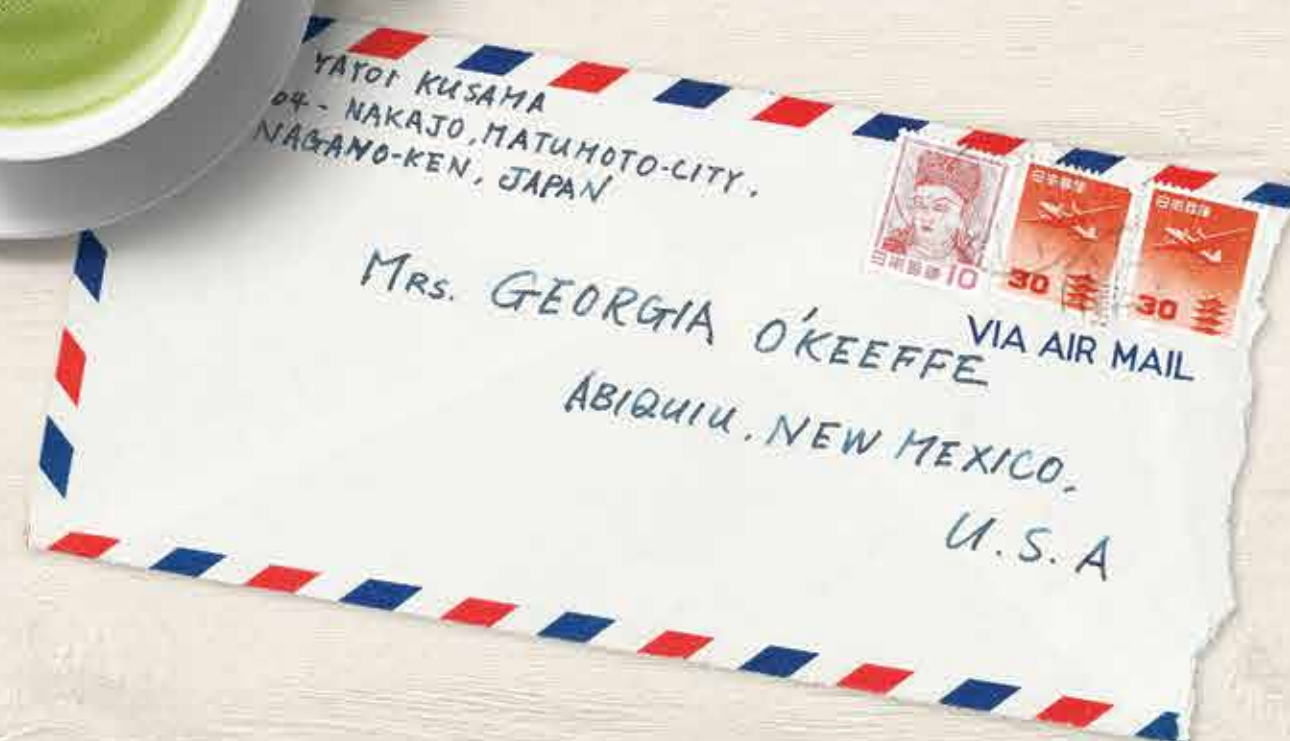 YAYOI KUSAMA
04 - NAKAJO, MATUMOTO-CITY,
NAGANO-KEN, JAPAN
日本郵便 10
日本郵便
30
日本郵便
30
VIA AIR MAIL
MRS. GEORGIA O'KEEFFE
ABIQUIU, NEW MEXICO,
U.S.A